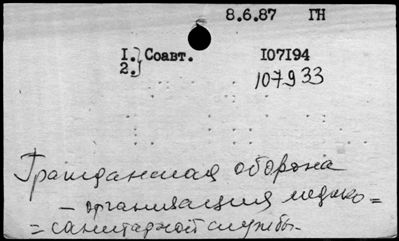 8.6.87 ГН
1. Соавт. 107194
2. 107933
Гражданская оборона
— организация медико=
=санитарной службы.